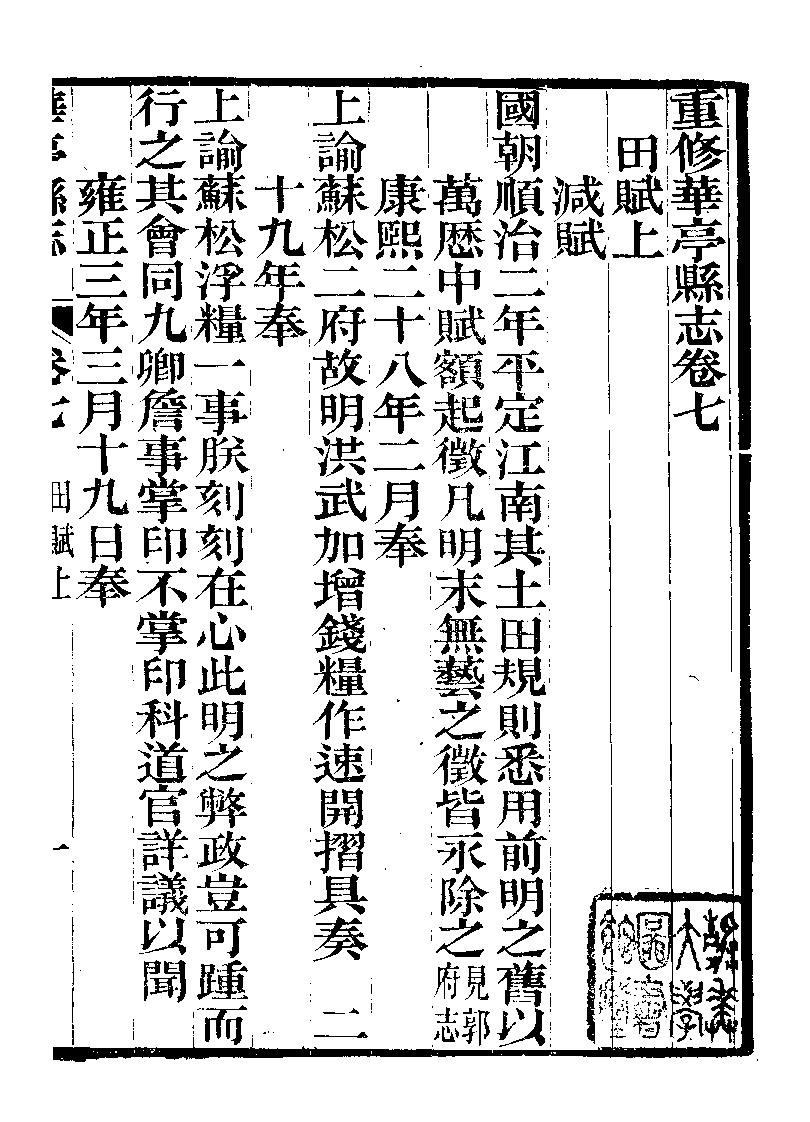 重修華亭縣志卷七
田賦上
減賦
國朝順治二年平定江南其土田規則悉用前明之舊以
萬厯中賦額起徵凡明末無藝之徵皆永除之見郭府志
康熙二十八年二月奉
上諭蘇松二府故明洪武加增錢糧作速開摺具奏 二
十九年奉
上諭蘇松浮糧一事朕刻刻在心此明之弊政豈可踵而
行之其會同九卿詹事掌印不掌印科道官詳議以聞
雍正三年三月十九日奉
華亭縣志 卷七 田賦上 一